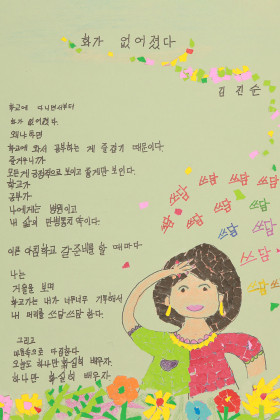 화가 없어졌다
김 진 순
학교에 다니면서부터
화가 없어졌다.
왜냐하면
학교에 와서 공부하는 게 즐겁기 때문이다.
즐거우니까
모든게 긍정적으로 보이고 좋게만 보인다.
학교가
공부가
나에게는 병원이고
내 삶의 만병통치약이다.
이른 아침 학교 갈 준비를 할 때마다
나는
거울을 보며
학교가는 내가 너무너무 기특해서
내 머리를 쓰담쓰담 한다.
그리고
마음속으로 다짐한다.
오늘도 하나만 확실히 배우자
하나만 확실히 배우자.
쓰담
쓰담
쓰담
쓰담
쓰담
쓰담
쓰담
쓰담
쓰담
쓰담